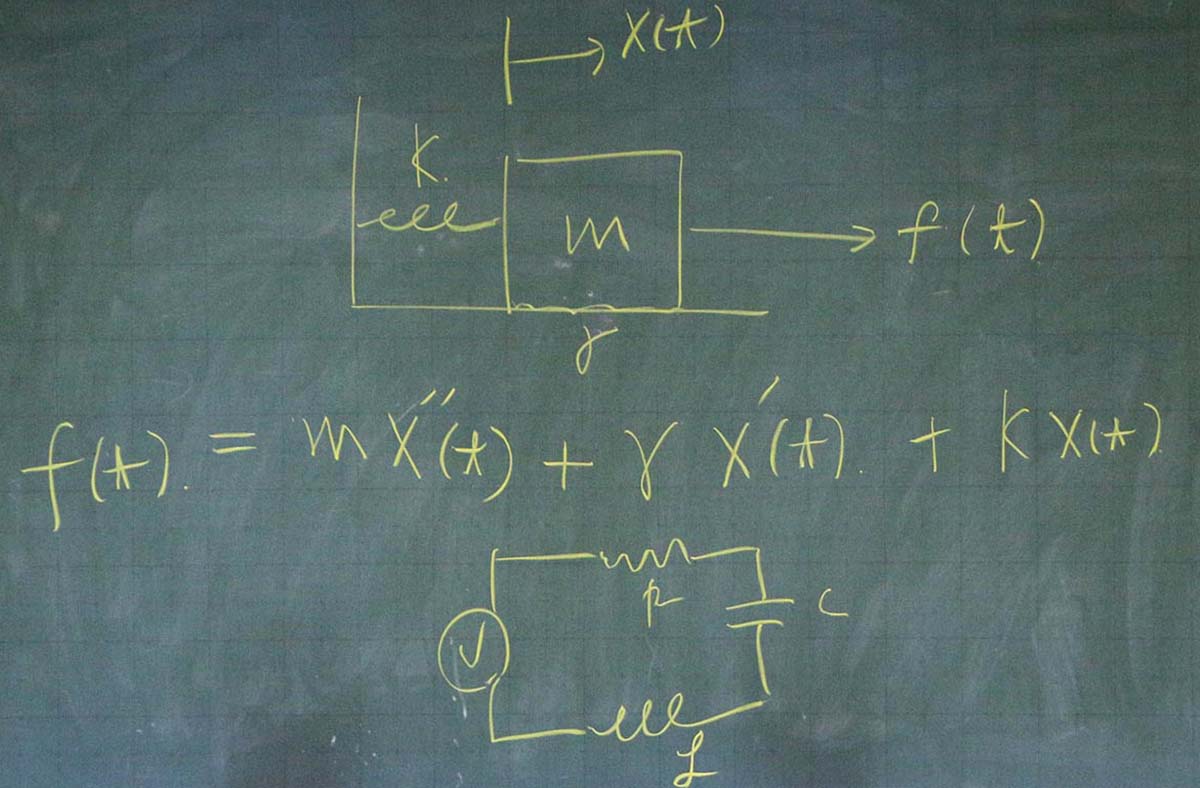 x(t)
K.
m
f(t)
γ
f(t). = m x''(t) + γ x'(t). + k x(t)
R
C
V
L